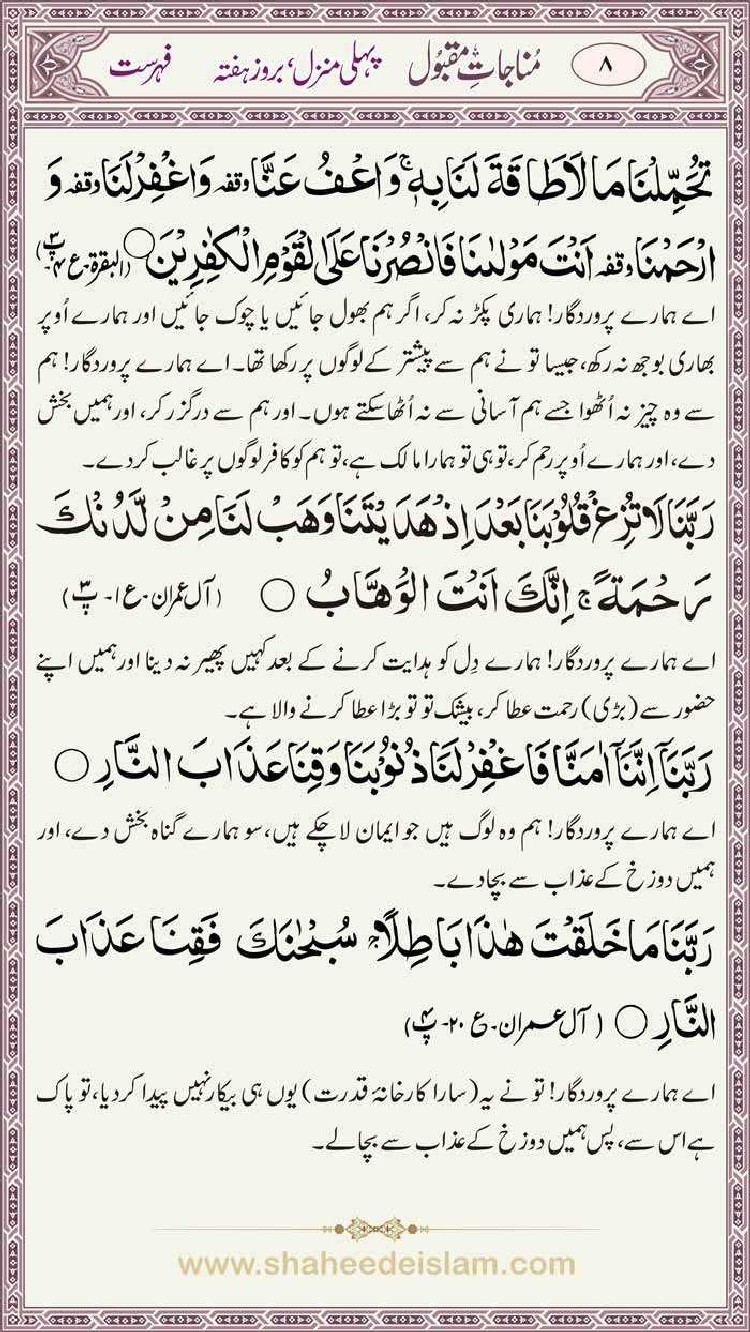 ۸ مُناجاتِ مقبُول پہلی منزل، بروز ہفتہ فہرست
تُحَمِّلْنَا مَا لَا طَاقَةَ لَنَا بِهٖ ۚ وَاعْفُ عَنَّا وقفہ وَاغْفِرْلَنَا وقفہ وَ
ارْحَمْنَا وقفہ اَنْتَ مَوْلٰىنَا فَانْصُرْنَا عَلَى الْقَوْمِ الْكٰفِرِيْنَ ○ (البقرۃ۔ع ۴۰۔ پ۳)
اے ہمارے پروردگار! ہماری پکڑ نہ کر، اگر ہم بھول جائیں یا چوک جائیں اور ہمارے اُوپر
بھاری بوجھ نہ رکھ، جیسا تو نے ہم سے پیشتر کے لوگوں پر رکھا تھا۔ اے ہمارے پروردگار! ہم
سے وہ چیز نہ اُٹھوا جسے ہم آسانی سے نہ اُٹھا سکتے ہوں۔ اور ہم سے درگزر کر، اور ہمیں بخش
دے، اور ہمارے اُوپر رحم کر، تو ہی تو ہمارا مالک ہے، تو ہم کو کافر لوگوں پر غالب کر دے۔
رَبَّنَا لَا تُزِغْ قُلُوْبَنَا بَعْدَ اِذْ هَدَيْتَنَا وَهَبْ لَنَا مِنْ لَّدُنْكَ
رَحْمَةً ۚ اِنَّكَ اَنْتَ الْوَهَّابُ ○ (آل عمران۔ع ۱۔ پ۳)
اے ہمارے پروردگار! ہمارے دِل کو ہدایت کرنے کے بعد کہیں پھیر نہ دینا اور ہمیں اپنے
حضور سے (بڑی) رحمت عطا کر، بیشک تو تو بڑا عطا کرنے والا ہے۔
رَبَّنَآ اِنَّنَآ اٰمَنَّا فَاغْفِرْلَنَا ذُنُوْبَنَا وَقِنَا عَذَابَ النَّارِ ○
اے ہمارے پروردگار! ہم وہ لوگ ہیں جو ایمان لا چکے ہیں، سو ہمارے گناہ بخش دے، اور
ہمیں دوزخ کے عذاب سے بچا دے۔
رَبَّنَا مَا خَلَقْتَ هٰذَا بَاطِلًا ۚ سُبْحٰنَكَ فَقِنَا عَذَابَ
النَّارِ ○ (آل عمران۔ع ۲۰۔ پ۴)
اے ہمارے پروردگار! تو نے یہ (سارا کارخانۂ قدرت) یوں ہی بیکار نہیں پیدا کر دیا، تو پاک
ہے اس سے، پس ہمیں دوزخ کے عذاب سے بچالے۔
www.shaheedeislam.com